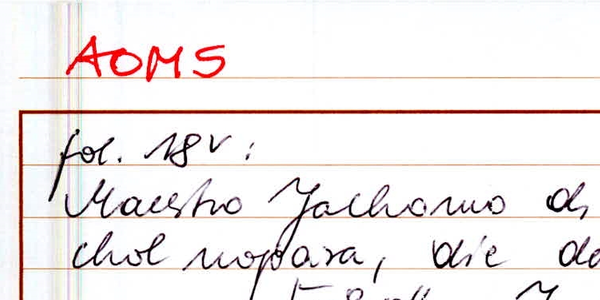 AOMS
fol. 18v:
Maestro Jachomo di
chol nopara, die